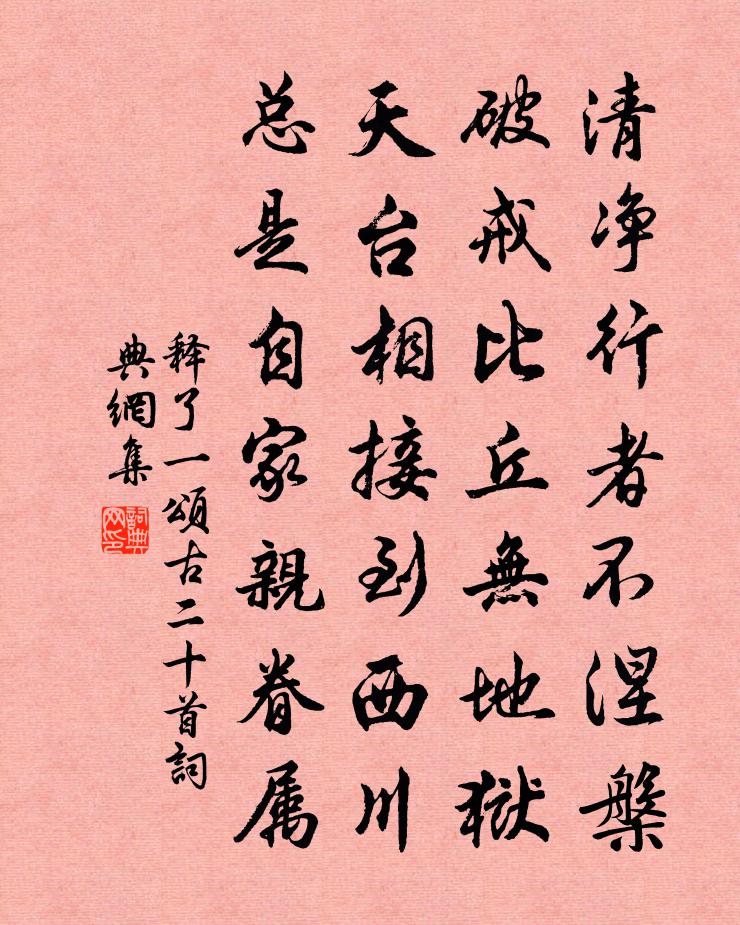 清净行者不涅槃
破戒比丘無地獄
天台相接到西川
总是自家親眷属
释了一頌古二十首詞
典網集
詞典網印